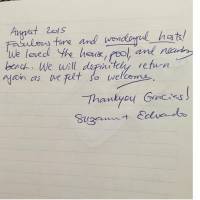 August 2015
Fabulous time and wonderful hosts!
We loved the house, pool, and nearby
beach. We will definitely return
again as we felt so welcome.
Thankyou Gracias!
Suzann + Edvardo